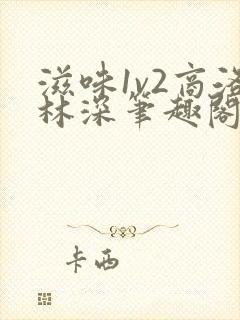 滋味1v2高洛
林深笔趣阁
卡西